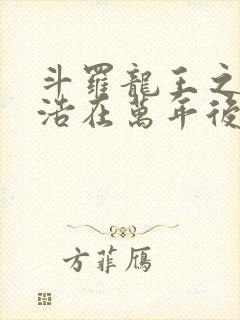 斗羅龍王之
浩在萬年後
方菲鴈